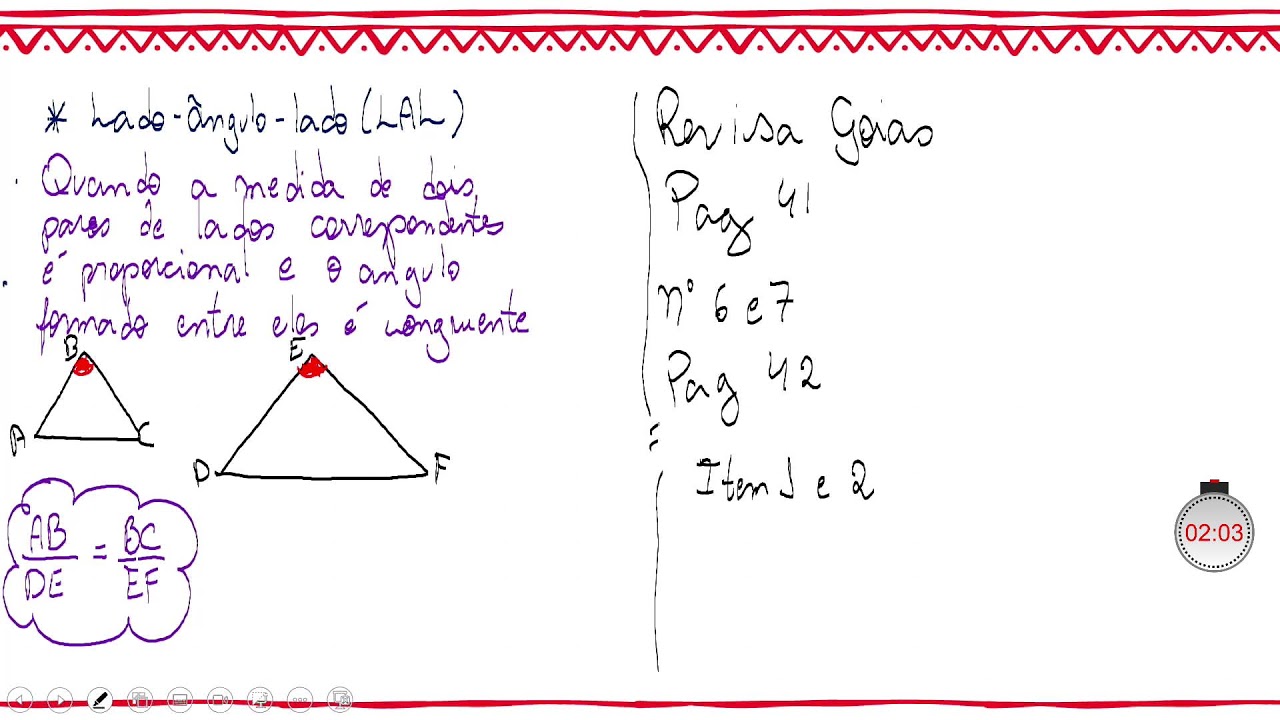 * Lado-ângulo-lado (LAL)
Quando a medida de dois
pares de lados correspondentes
é proporcional e o angulo
formado entre eles é congruente
B
E
A
C
D
F
AB = BC
DE EF
Revisa Goias
Pag 41
nº 6 e 7
Pag 42
=
Item 1 e 2
02:03